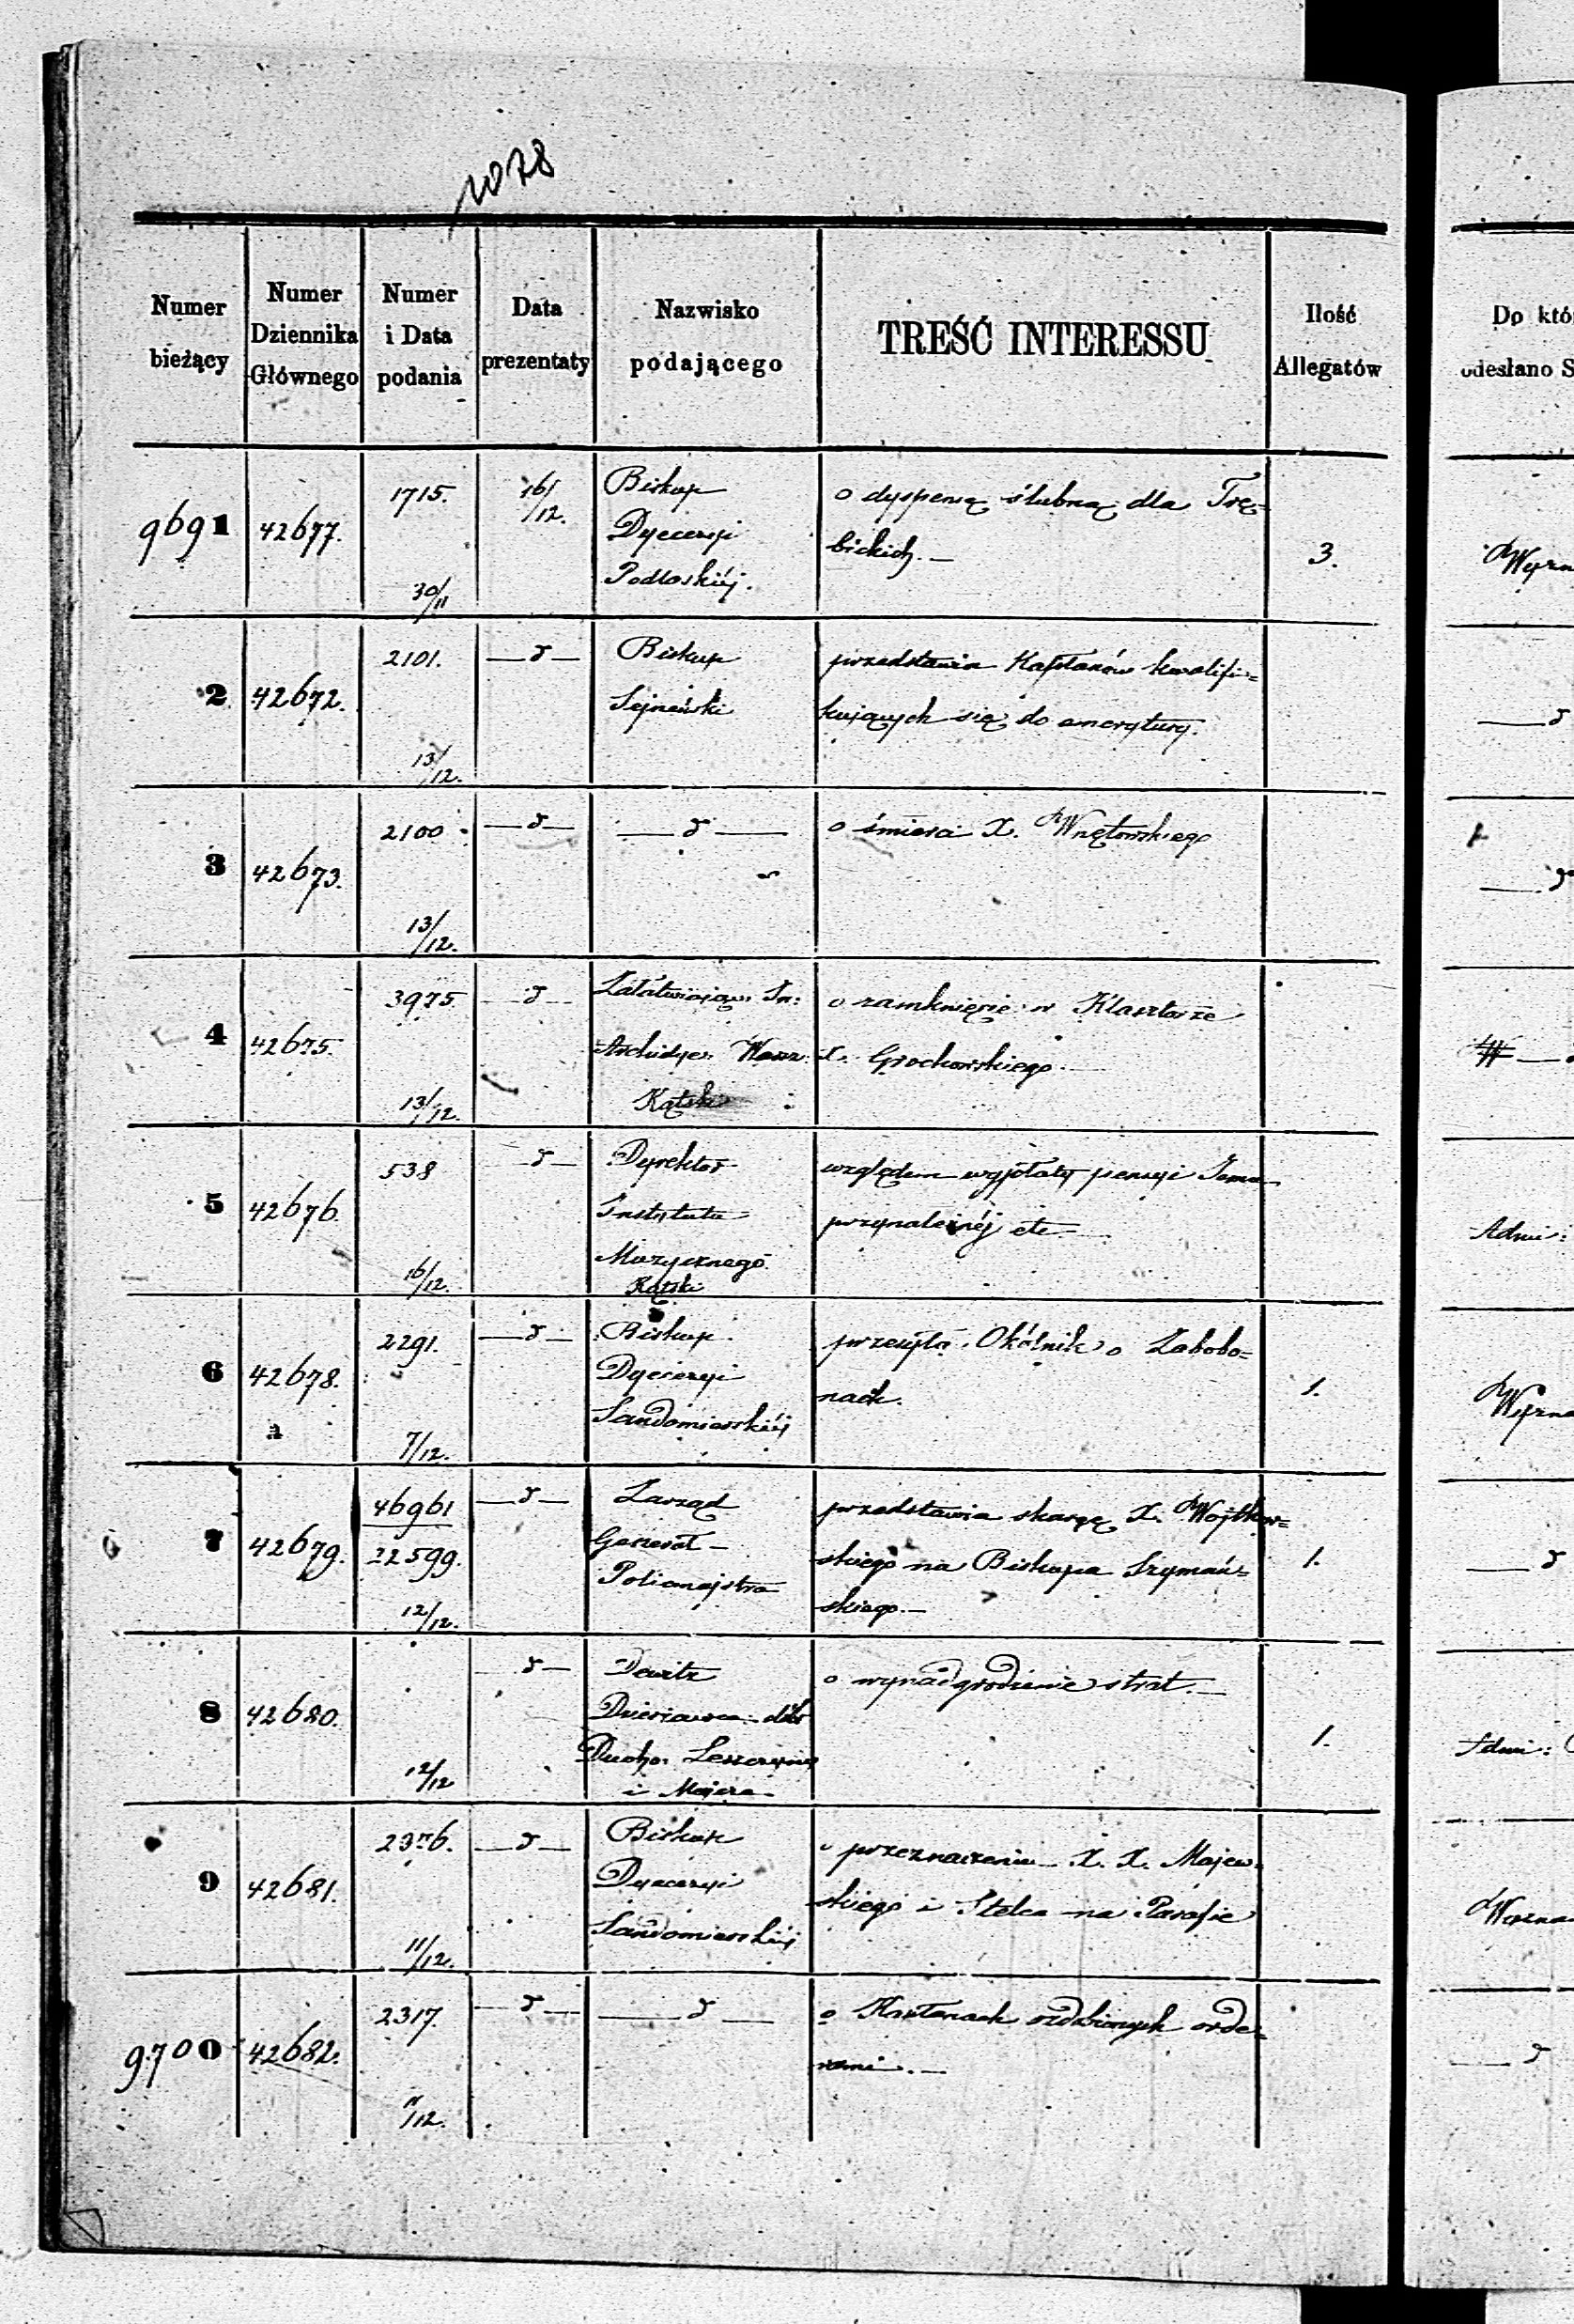 1078
Numer bieżący
Numer Dziennika Głównego
Numer i Data podania
Data prezentaty
Nazwisko podającego
TREŚĆ INTERESSU
Ilość Allegatów
Do któ
odesłano S
9691 42677. 1715. 30/11 16/12.
Biskup
Dyecezyi
Podlaskiéj.
o dyspensę ślubną dla Trę=
bickich. —
3.
Wyzn
2 42672. 2101. 13/12. — d —
Biskup
Sejneński
przedstawia Kapłanów kwalifi=
kujących się do emerytury.
— d
3 42673. 2100 13/12. — d —
— d —
o śmierci X.
— d
4 42675. 3975. 13/12. — d —
Archidyec: Warsz:
Kątski
o zamknięcie w Klasztorze
X. Grochowskiego —
5 42676. 538 16/12. — d —
Dyrektor
Instytutu
Muzycznego
Kątski
względem wypłaty pensyi Jemu
przynależnéj etc —
Admi:
6 42678. 2291. 7/12. — d —
Biskup
Dyecezyi
Sandomierskiéj
przesyła Okólnik o Zabobo=
nach.
1.
Wyzna
7 42679. 46961 22599. 12/12. — d —
Zarząd
Generał —
Policmajstra
przedstawia skargę X. Wojtkow=
skiego na Biskupa Szymań=
skiego. —
1.
— d
8 42680. 12/12 — d —
Dewitz
Dzierżawca dóbr
Ducho.
i
o wynadgrodzenie strat. —
1.
Admi:
9 42681. 2376. 11/12. — d —
Biskup
Dyecezyi
Sandomierskiéj
o przeznaczeniu X. X. Majew=
skiego i Stelca na Parafie
Wyzna
9700 42682. 2317. 11/12. — d —
— d —
o Kapłanach ozdobionych orde=
rami. —
— d